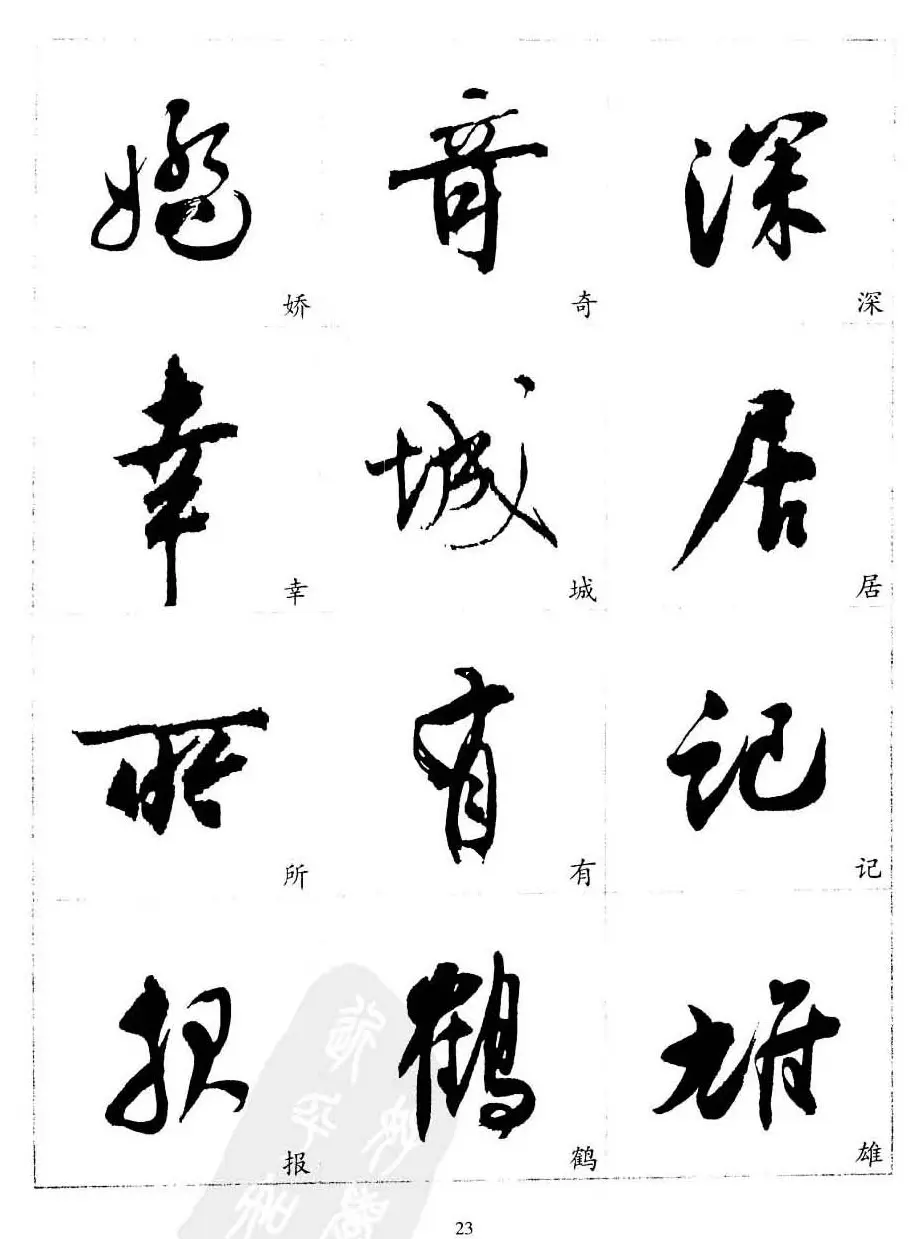 娇 奇 深
幸 城 居
所 有 记
报 鹤 雄
23